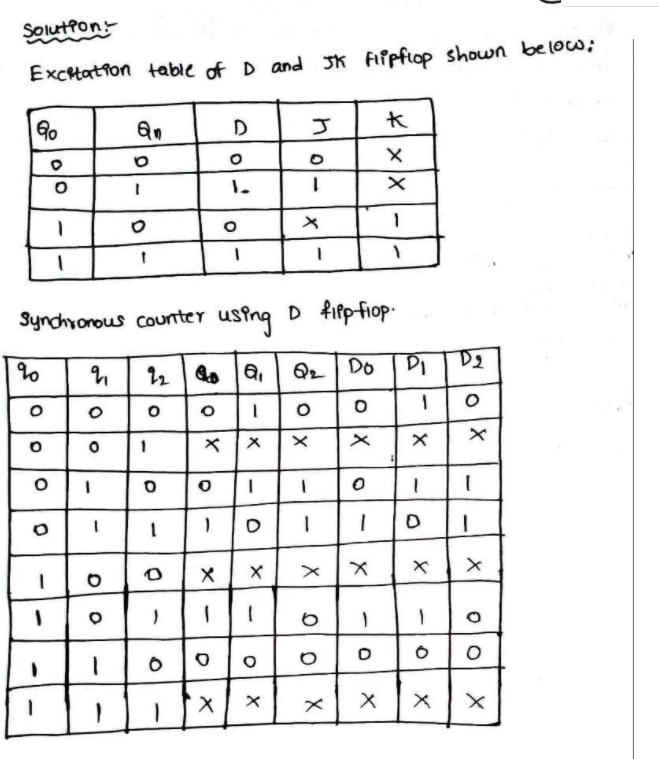 Solution:-
Excitation table of D and JK flipflop shown below:
q0 Qn D J K
0 0 0 0 X
0 1 1. 1 X
1 0 0 X 1
1 1 1 1 1
Synchronous counter using D flip-flop.
q0 q1 q2 Q0 Q1 Q2 D0 D1 D2
0 0 0 0 1 0 0 1 0
0 0 1 X X X X X X
0 1 0 0 1 1 0 1 1
0 1 1 1 0 1 1 0 1
1 0 0 X X X X X X
1 0 1 1 1 0 1 1 0
1 1 0 0 0 0 0 0 0
1 1 1 X X X X X X